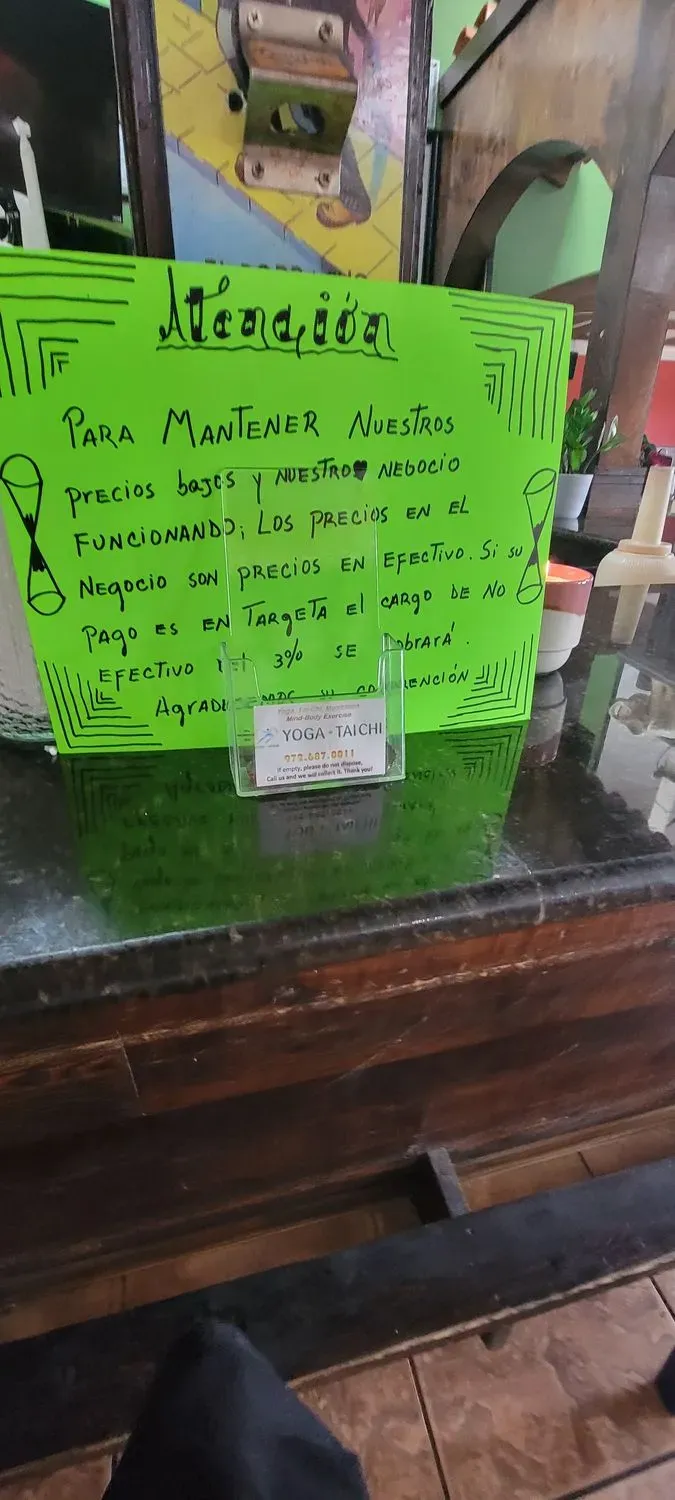 Atención
PARA MANTENER NUESTROS
PRECIOS bajos y NUESTRO NEGOCIO
FUNCIONANDO; LOS PRECIOS EN EL
NEgocio SON PRECIOS EN EFECTIVO. Si su
PAgo ES EN TARgETA El CARgO DE NO
EFECTIVO 3% SE
su
Yoga, Tai-Chi, Meditation
Mind-Body Exercise
YOGA - TAI CHI
972.687.0011
If empty, please do not dispose,
Call us and we will collect it. Thank you!